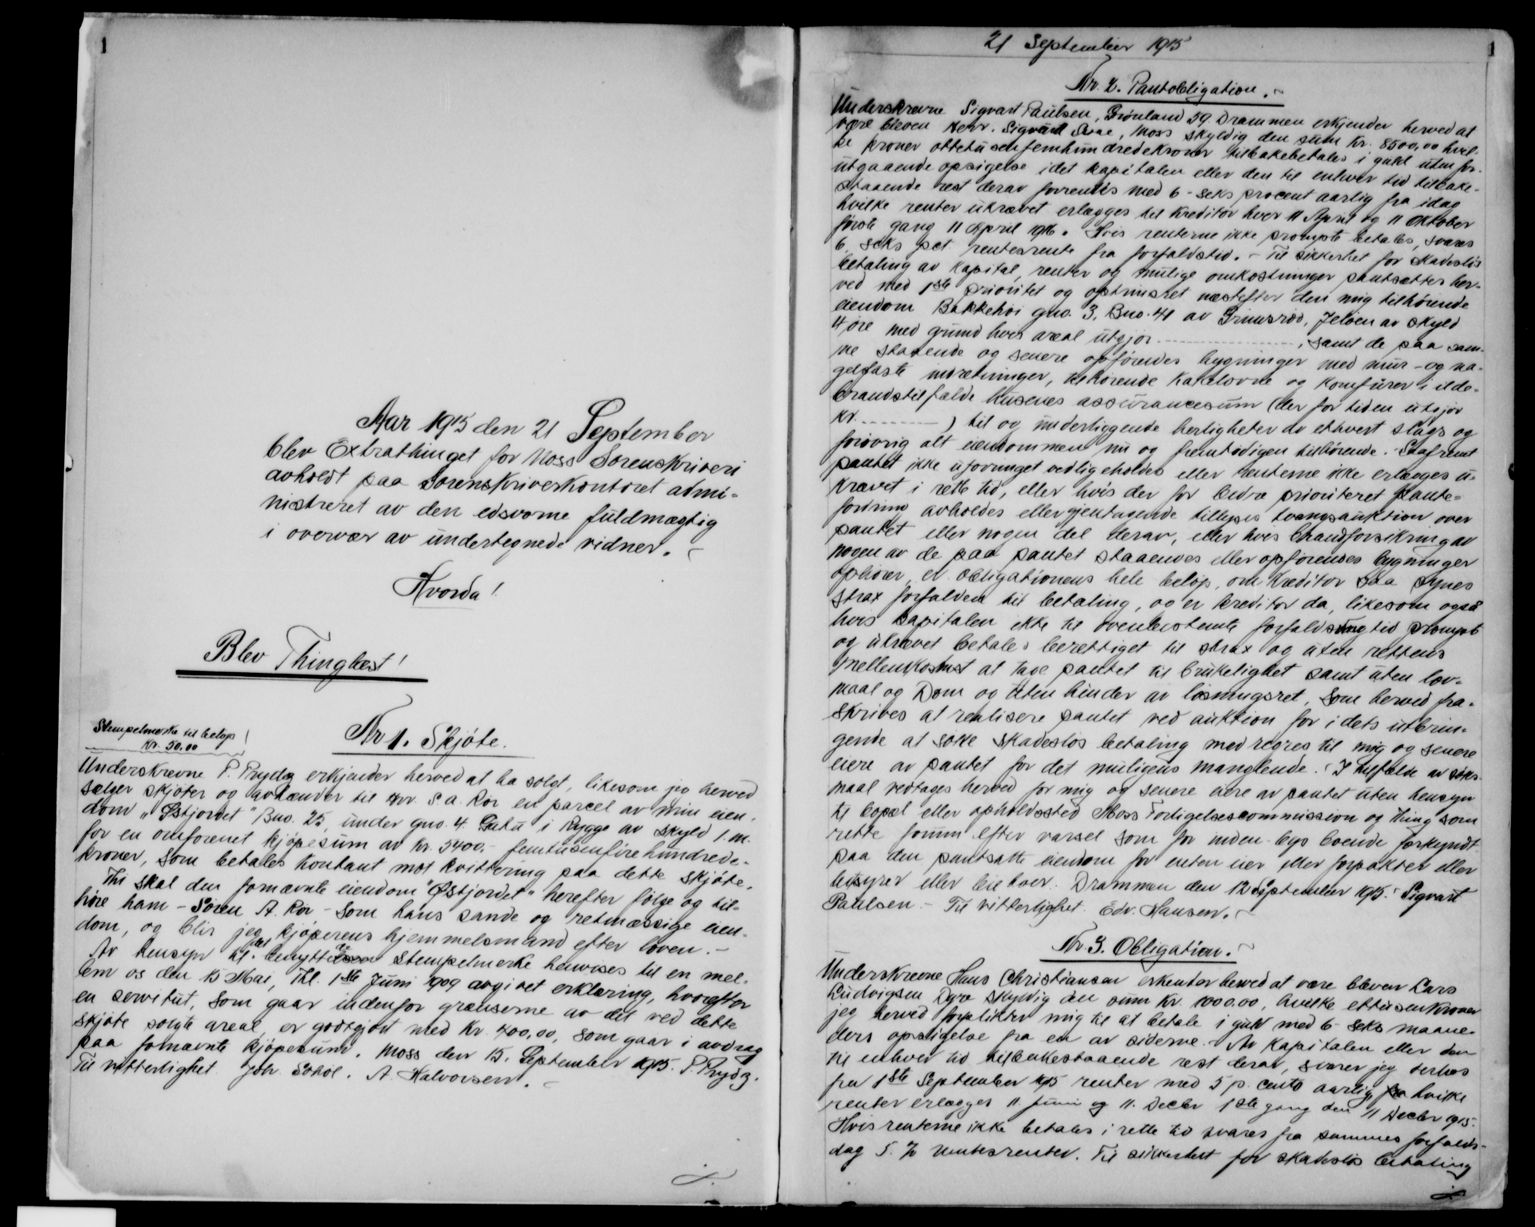 1
Aar 1915 den 21 September
blev Extrathinget for Moss Sorenskriveri
avholdt paa Sorenskriverkontoret admi-
nistreret av den edsvorne fuldmægtig
i overvær av undertegnede vidner.
Hvorda!
Blev Thinglæst!
Stempelmerke til beløp
kr. 50.00
Nr 1. Skjøte.
Underskrevne P. Prydz erkjender herved at ha solgt, likesom jeg herved
sælger skjøter og avhænder til Hrr S. A. Ror en parcel av min eien-
dom "Østjordet" Bno. 25, under gno. 4. i Rygge av skyld 1. m.
for en omforenet kjøpesum av kr. 5400.- femtusenfirehundrede-
kroner, som betales kontant mot kvittering paa dette skjøte.
Thi skal den fornævnte eiendom "Østjordet" herefter følge og til-
høre ham - Søren A. Ror - som hans sande og retmæssige eien-
dom, og blir jeg kjøperens hjemmelsmand efter loven. -
Av hensyn til det benyttede Stempelmerke henvises til en mel-
lem os den 15 Mai, thl. 1ste Juni 1909 avgivet erklæring, hvorefter
en servitut, som gaar indenfor grænserne av det ved dette
skjøte solgte areal, er godtgjort med kr. 400,00, som gaar i avdrag
paa fornævnte kjøpesum. Moss den 15. September 1915. P. Prydz.
Til vitterlighet Joh. A. Halvorsen.
21 September 1915
1
Nr. 2. Pantobligation.
Underskrevne Sigvart Paulsen, Grønland 59 Drammen erkjender herved at
være bleven Herr. Sigvard Moss skyldig den sum kr. 8500,00 hvil-
ke kroner ottetusenfemhundredekroner tilbakebetales i guld uten for-
utgaaende opsigelse idet kapitalen eller den til enhver tid tilbake-
staaende rest derav forrentes med 6 - seks procent aarlig fra idag
hvilke renter utkrævet erlægges til kreditor hver 11 April og 11 Oktober
første gang 11 April 1916. Hvis renterne ikke prompte betales, svares
6 seks pct rentesrente fra forfaldstid. - Til sikkerhet for skadesløs
betaling av kapital, renter og mulige omkostninger pantsættes her-
ved med 1ste prioritet og optrinsret næstefter den mig tilhørende
eiendom Bakkehøi gno. 3, Bno. 41 av Grimsrød, Jeløen av skyld
4 øre med grund hvis areal utgjør ............ , samt de paa sam-
me staaende og senere opførendes bygninger med mur- og na-
gelfaste indretninger, tilhørende kakelovne og komfurer i ilds-
brandstilfælde husenes assurancesum (der for tiden utgjør
kr. ............ ) til og underliggende herligheter av ethvert slags og
forøvrig alt eiendommen nu og fremtidigen tilhørende. Saafremt
pantet ikke uforringet vedligeholdes eller renterne ikke erlægges u-
krævet i rette tid, eller hvis der for bedre prioriteret pante-
fordring avholdes eller gjentagende tillyses tvangsauktion over
pantet eller nogen del derav, eller hvis brandforsikring av
nogen av de paa pantet staaendes eller opførendes bygninger
ophører, er obligationens hele beløp, om kreditor saa synes
strax forfalden til betaling, og er kreditor da, likesom også
hvis kapitalen ikke til ovenbestemte forfaldstid prompt
og utkrævet betales berettiget til strax og uten rettens
mellemkomst at tage pantet til brukelighet samt uten lov-
maal og Dom og uten hinder av løsningsret, som herved fra-
skrives at realisere pantet ved auktion for i dets utbrin-
gende at søke skadesløs betaling med regres til mig og senere
eiere av pantet for det muligens manglende. I tilfælde av søks-
maal vedtages herved for mig og senere eiere av pantet uten hensyn
til bopæl eller opholdssted Moss Forligelsescommission og Thing som
rette forum efter varsel som for inden-bygs boende forkyndt
paa den pantsatte eiendom for enten eier eller forpakter eller
bestyrer eller leieboer. Drammen den 12 September 1915. Sigvart
Paulsen. - Til vitterlighet Edv. Hansen.
Nr 3. Obligation.
Underskrevne Hans Christiansen erkender herved at være bleven Lars
Ludvigsen Dyre skyldig den sum kr. 1000.00, hvilke ettusenkroner
jeg herved forplikter mig til at betale i guld med 6 - seks maane-
ders opsigelse fra en av siderne. Av kapitalen eller den
til enhver tid tilbakestaaende rest derav, svarer jeg
fra 1ste September 1915 renter med 5 p. cento aarlig hvilke
renter erlægges 11. Juni og 11. Decbr 1ste gang den 11 Decbr 1915.
Hvis renterne ikke betales i rette tid svares fra sammes forfalds-
dag 5 % rentesrenter. Til sikkerhet for skadesløs betaling